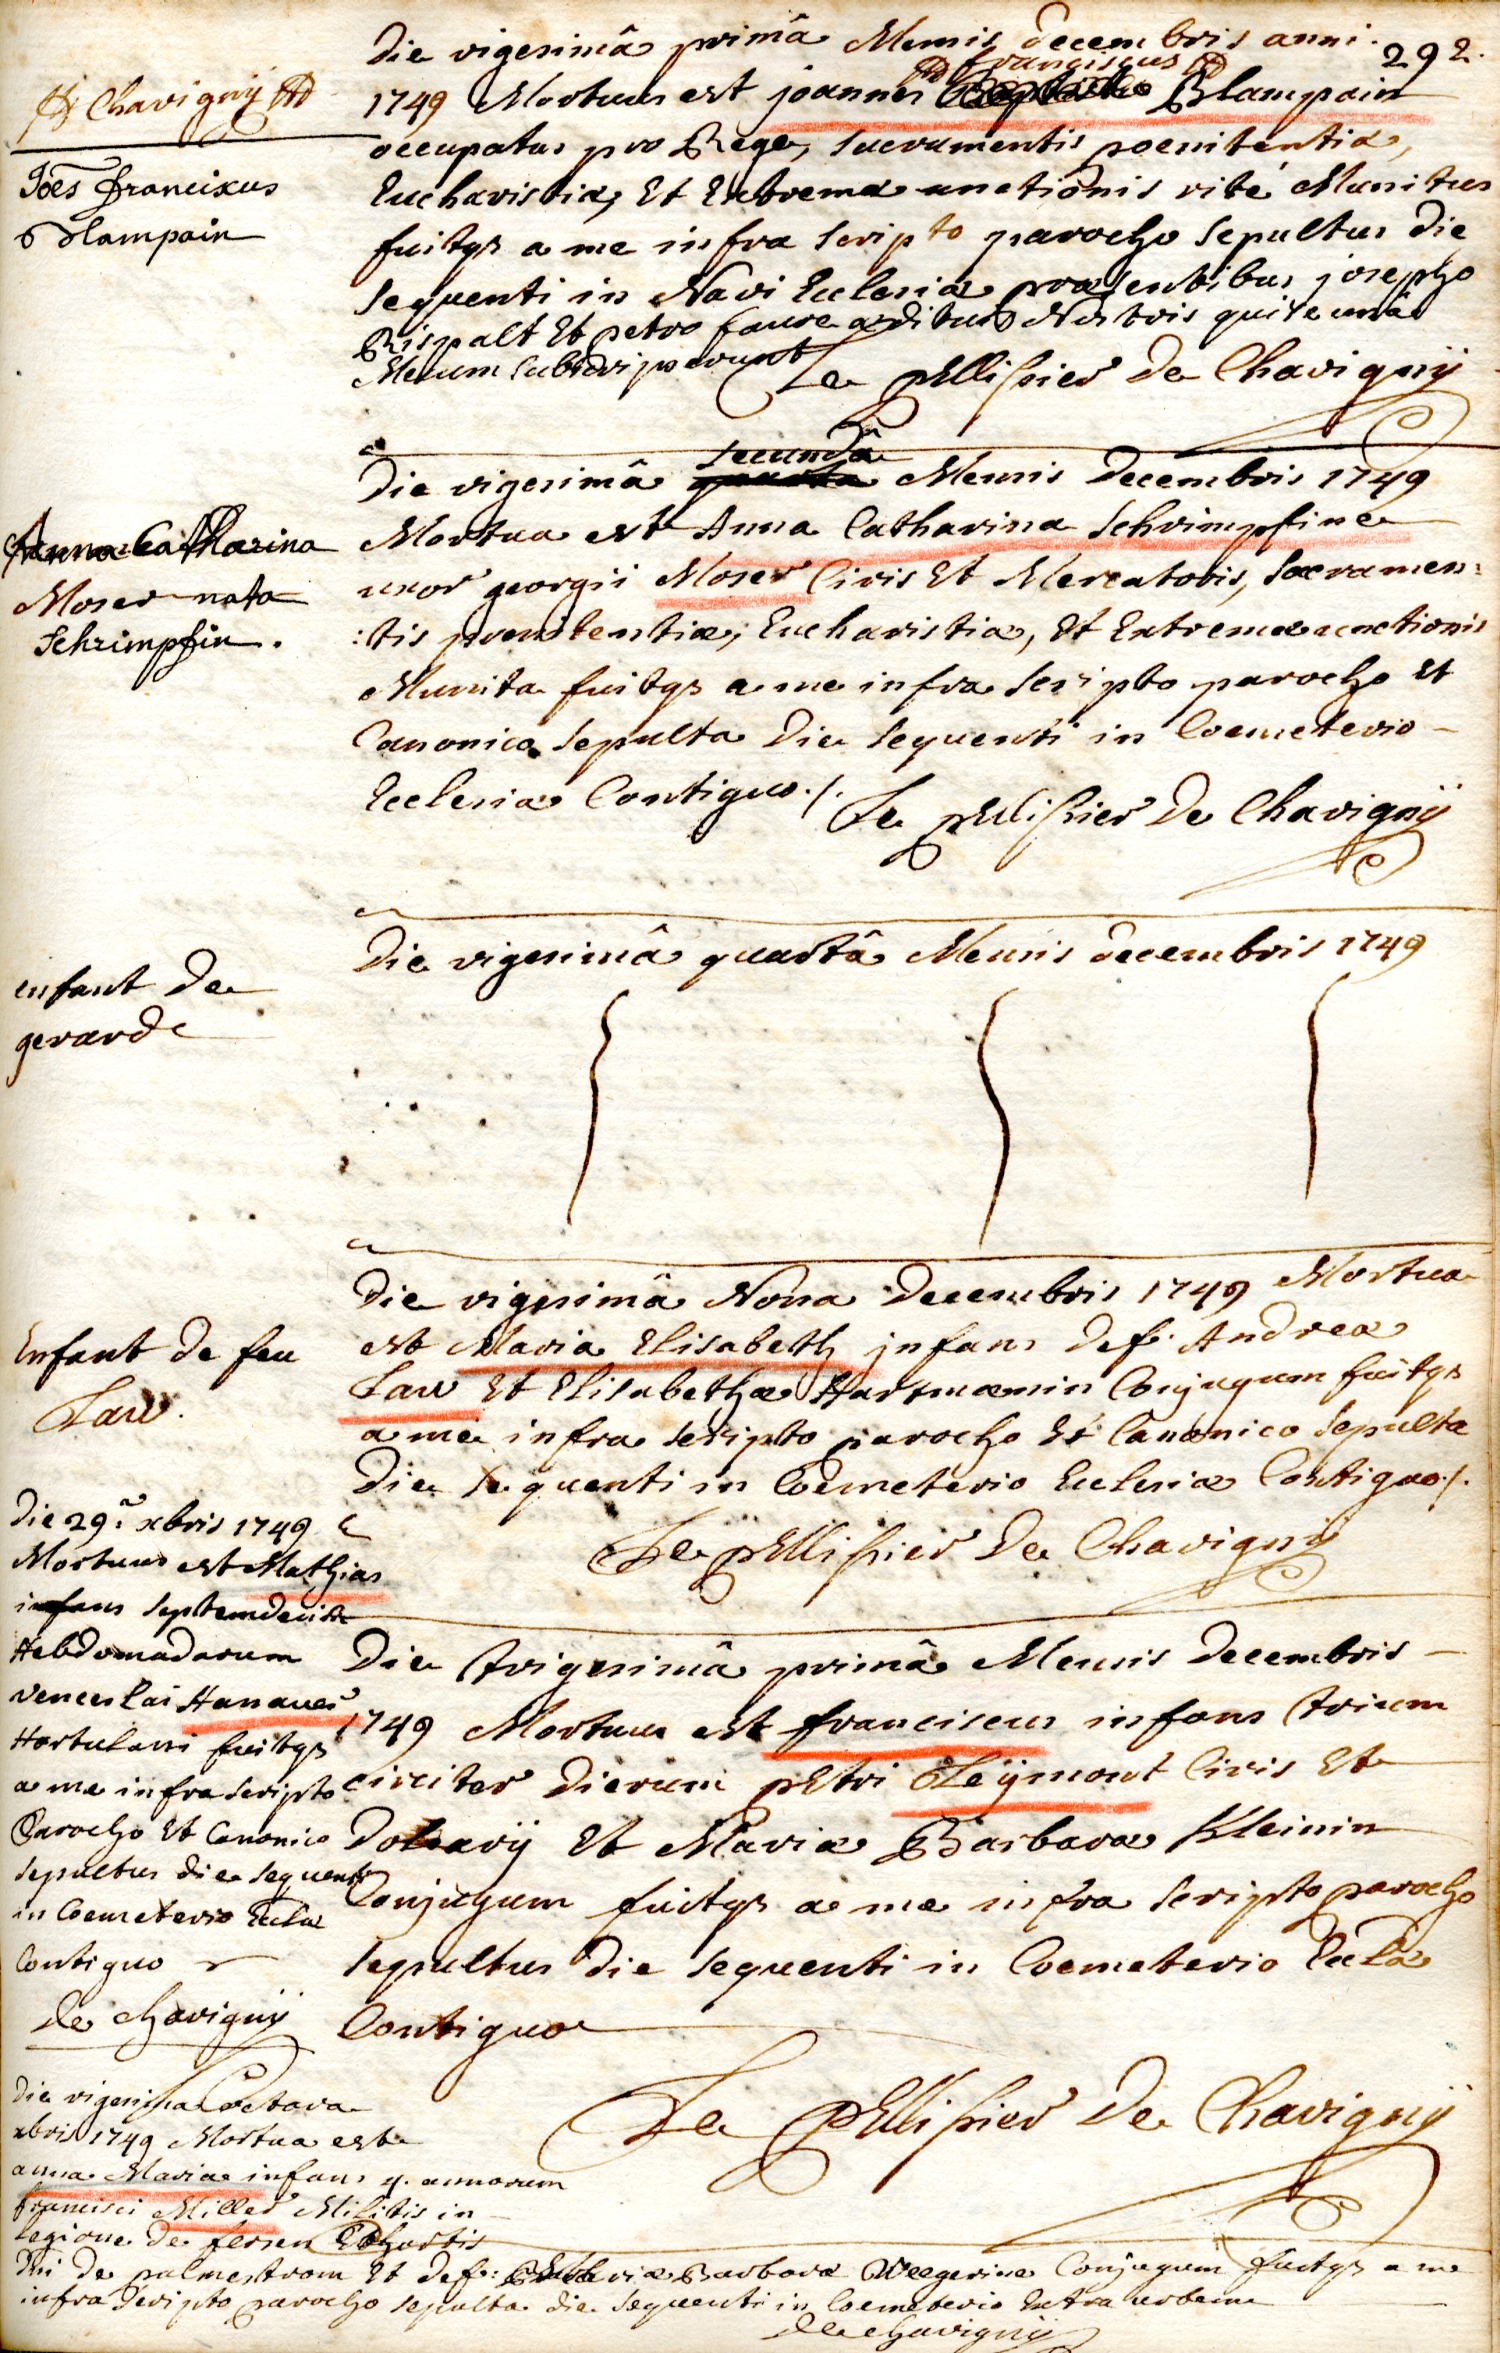 292.
Die vigesimâ primâ Mensis Decembris anni
franciscus
1749 Mortuus est joannes Blampain
occupatus pro Rege, sacramentis poenitentiæ,
Eucharistiæ, Et Extremæ unctionis rité Munitus
fuitqs a me infra scripto parocho sepultus die
sequenti in Navi Ecclesiæ præsentibus josepho
Rispalt Et petro faure ædituis Nostris qui unâ
Mecum subscripserunt Le pellissier De Chavignÿ
Chavignÿ
Joês franciscus
Blampain
secundâ
Die vigesimâ quarta Mensis Decembris 1749
Mortua est Anna Catharina Schrimpfine
uxor georgii Moser Civis Et Mercatoris, Sacramen:
:tis poenitentiæ, Eucharistiæ, Et Extremæ unctionis
Munita fuitqs a me infra scripto parocho Et
Canonico sepulta Die sequenti in Coemeterio
Ecclesiæ Contiguo ./. Le pellissier De Chavignÿ
Anna Catharina
Moser nata
Schrimpfin.
Die vigesimâ quartâ Mensis decembris 1749
enfant De
gerard
Die vigesimâ Nona Decembris 1749 Mortua
est Maria Elisabeth infans def. Andreæ
Law Et Elisabethæ Hartmænin Conjugum fuitqs
a me infra scripto parocho Et Canonico sepulta
Die sequenti in Coemeterio Ecclesiæ Contiguo ./.
Le pellissier De Chavignÿ
Enfant de feu
Law.
Die 29â xbris 1749
Mortuus est Mathias
infans septemdecim
Hebdomadarum
venceslai Hanauer
Hortulani fuitqs
a me infra scripto
Parocho Et Canonico
sepultus die sequenti
in Coemeterio Eccl­æ
Contiguo
De chavignÿ
Die trigesimâ primâ Mensis Decembris
1749 Mortuus est franciscus infans trium
circiter dierum petri Leÿmont Civis Et
Doliarij Et Mariæ Barbaræ Kleinin
Conjugum fuitqs a me infra scripto parocho
sepultus die sequenti in Coemeterio Eccl­æ
Contiguo
Le pellissier De Chavignÿ
Die vigesima octava
xbris 1749 Mortua est
anna Maria infans annorum
francisci Miller Militis in
Legione De fersen Cohortis
Dni De palmestrom Et def: Mariæ Barbaræ Weegerine Conjugum fuitqs a me
infra scripto parocho sepulta die sequenti in Coemeterio Extra urbem
De chavignÿ